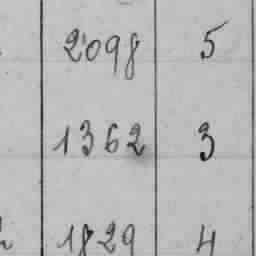 2098 5
1362 3
1829 4